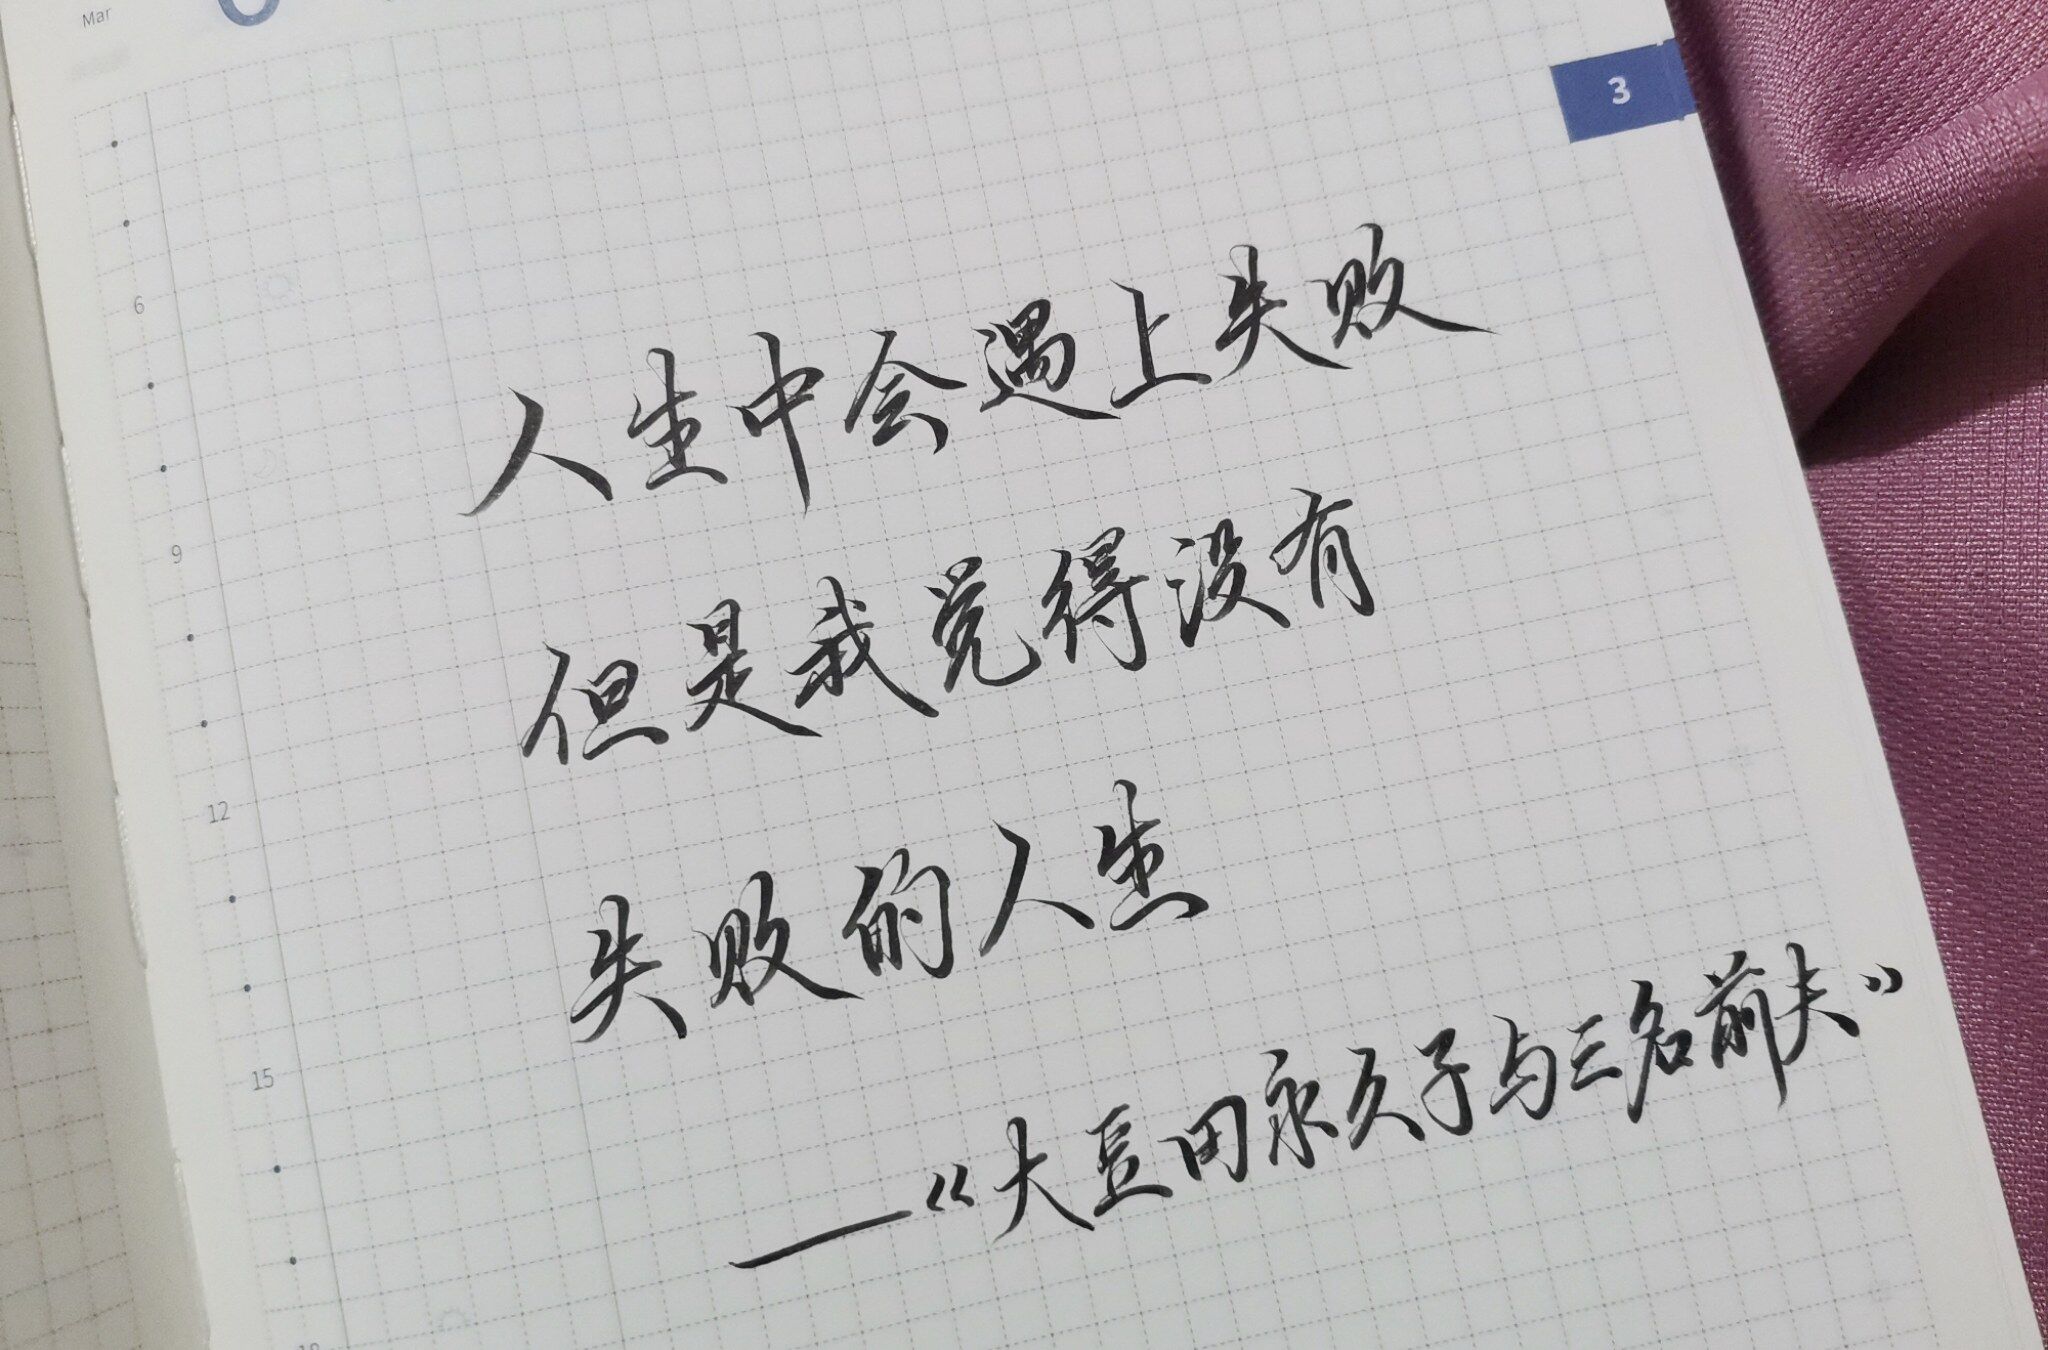 Mar
3
6
9
12
15
人生中会遇上失败
但是我觉得没有
失败的人生
——“大豆田永久子与三名前夫”